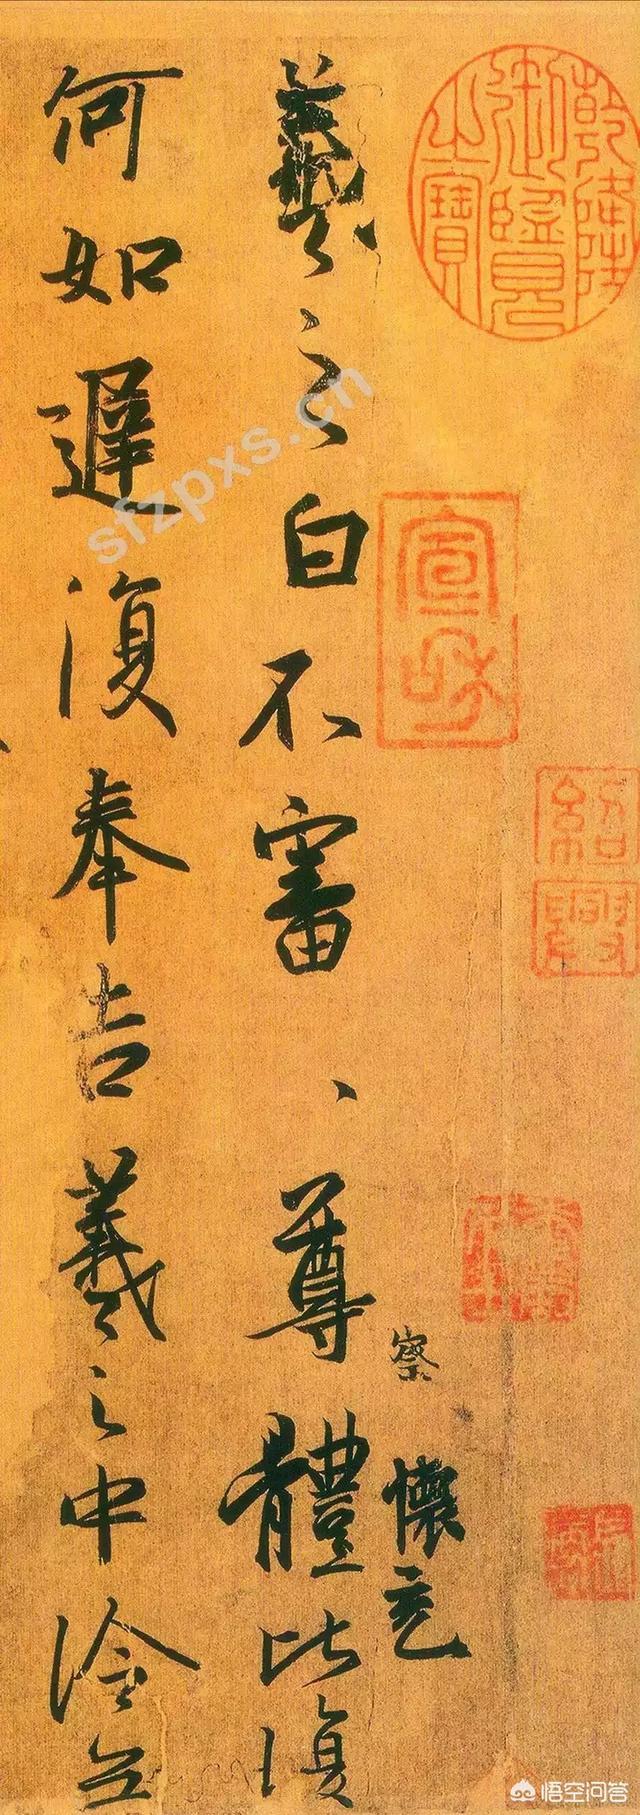 乾隆御覽之寶
宣和
紹興
察
懷充
羲之白不審、尊體比復
何如遲復奉告羲之中冷無
sfzpxs.cn
悟空问答